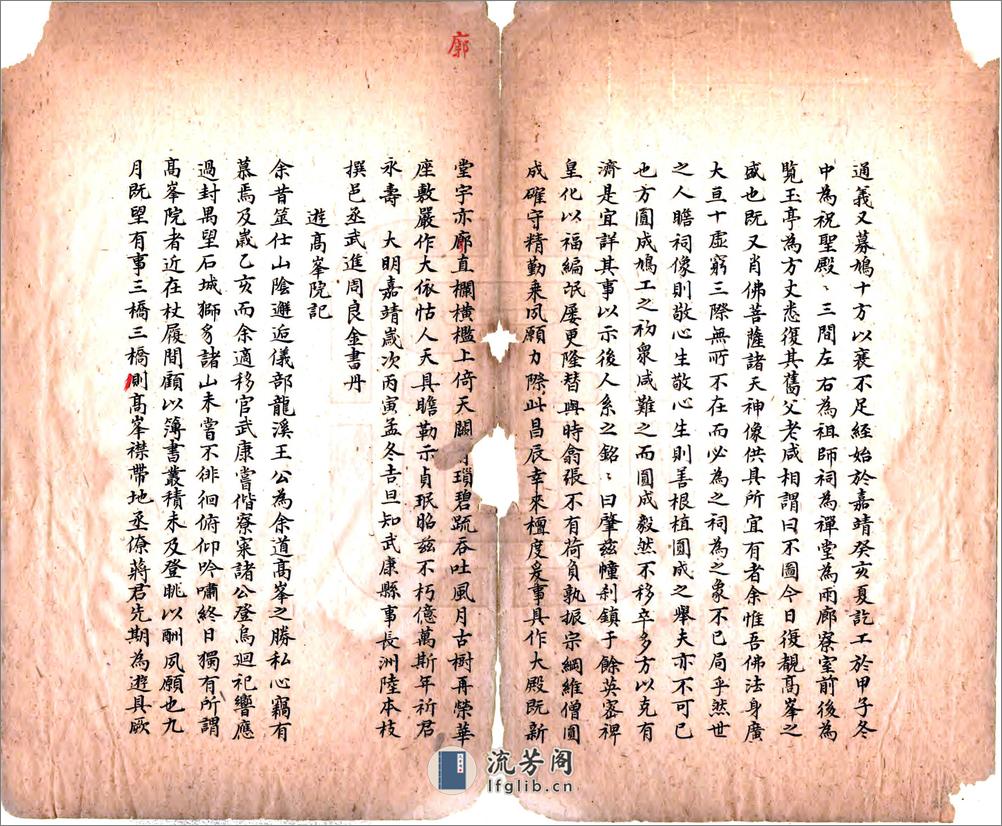 通義又募鳩十方以裒不足經始於嘉靖癸亥夏訖工於甲子冬
中為祝聖殿〻三間左右為祖師祠為禪堂為兩廊寮室前後為
覽玉亭為方丈悉復其舊父老咸相謂曰不圖今日復覩髙峯之
盛也既又肖佛菩薩諸天神像供具所宜有者余惟吾佛法身廣
大亘十虛窮三際無所不在而必為之祠為之象不已局乎然世
之人瞻祠像則敬心生敬心生則善根植圓成之舉夫亦不可已
也方圓成鳩工之初衆咸難之而圓成毅然不移卒多方以克有
濟是宜詳其事以示後人系之銘〻曰肇兹幢刹鎮于餘英宻禆
皇化以福編氓屢更隆替與時翕張不有荷負孰振宗綱維僧圓
成確守精勤乗夙願力際此昌辰幸來檀度爰事具作大殿既新
廓
堂宇亦廓直欄横檻上倚天闕瑣碧䟽吞吐風月古樹再榮華
座敷嚴作大依怙人天具瞻勒示貞珉昭兹不朽億萬斯年祈君
永壽 大明嘉靖嵗次丙寅孟冬吉旦知武康縣事長洲陸本枝
撰邑丞武進周良金書丹
遊髙峯院記
余昔筮仕山陰邂逅儀部龍溪王公為余道髙峯之勝私心竊有
慕焉及嵗乙亥而余適移官武康嘗偕寮寀諸公登烏廻祀響應
過封禺望石城獅多諸山未嘗不徘徊俯仰吟嘯終日獨有所謂
髙峯院者近在杖履間顧以簿書叢積未及登眺以酬夙願也九
月既望有事三橋三橋則髙峯襟帶地丞僚蔣君先期為遊具厥
流芳阁
lfglib.cn